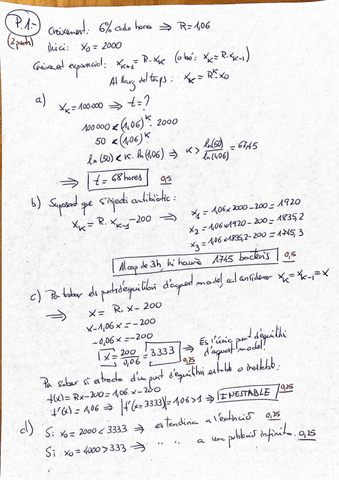 P.1.-
(2 punts)
Creixement: 6% cada hora ⇒ R=1,06
Inici: x₀ = 2000
Creixement exponencial: x_{k+1} = R·x_k (o bé: x_k = R·x_{k-1})
Al llarg del temps: x_k = R^k·x₀
a) x_k = 100000 ⇒ t = ?
100000 < (1,06)^k · 2000
50 < (1,06)^k
ln(50) < k·ln(1,06) ⇒ k > ln(50)/ln(1,06) = 67,45
⇒ t = 68 hores 0,5
b) Suposant que s'injecti antibiòtic:
x_k = R·x_{k-1} - 200 ⇒ x₁ = 1,06×2000-200 = 1920
x₂ = 1,06×1920-200 = 1835,2
x₃ = 1,06×1835,2-200 = 1745,3
Al cap de 3h, hi haurà 1745 bacteris 0,5
c) Per trobar els punts d'equilibri d'aquest model cal considerar x_k = x_{k-1} = x
⇒ x = Rx - 200
x - 1,06x = -200
-0,06x = -200
x = 200/0,06 = 3333 ⇒ És l'únic punt d'equilibri d'aquest model. 0,25
Per saber si es tracta d'un punt d'equilibri estable o inestable:
f(x) = Rx - 200 = 1,06x - 200
f'(x) = 1,06 ⇒ |f'(x=3333)| = 1,06 > 1 ⇒ INESTABLE 0,25
d) Si x₀ = 2000 < 3333 ⇒ es tendiria a l'extinció 0,25
Si x₀ = 4000 > 333 ⇒ " " a una població infinita. 0,25